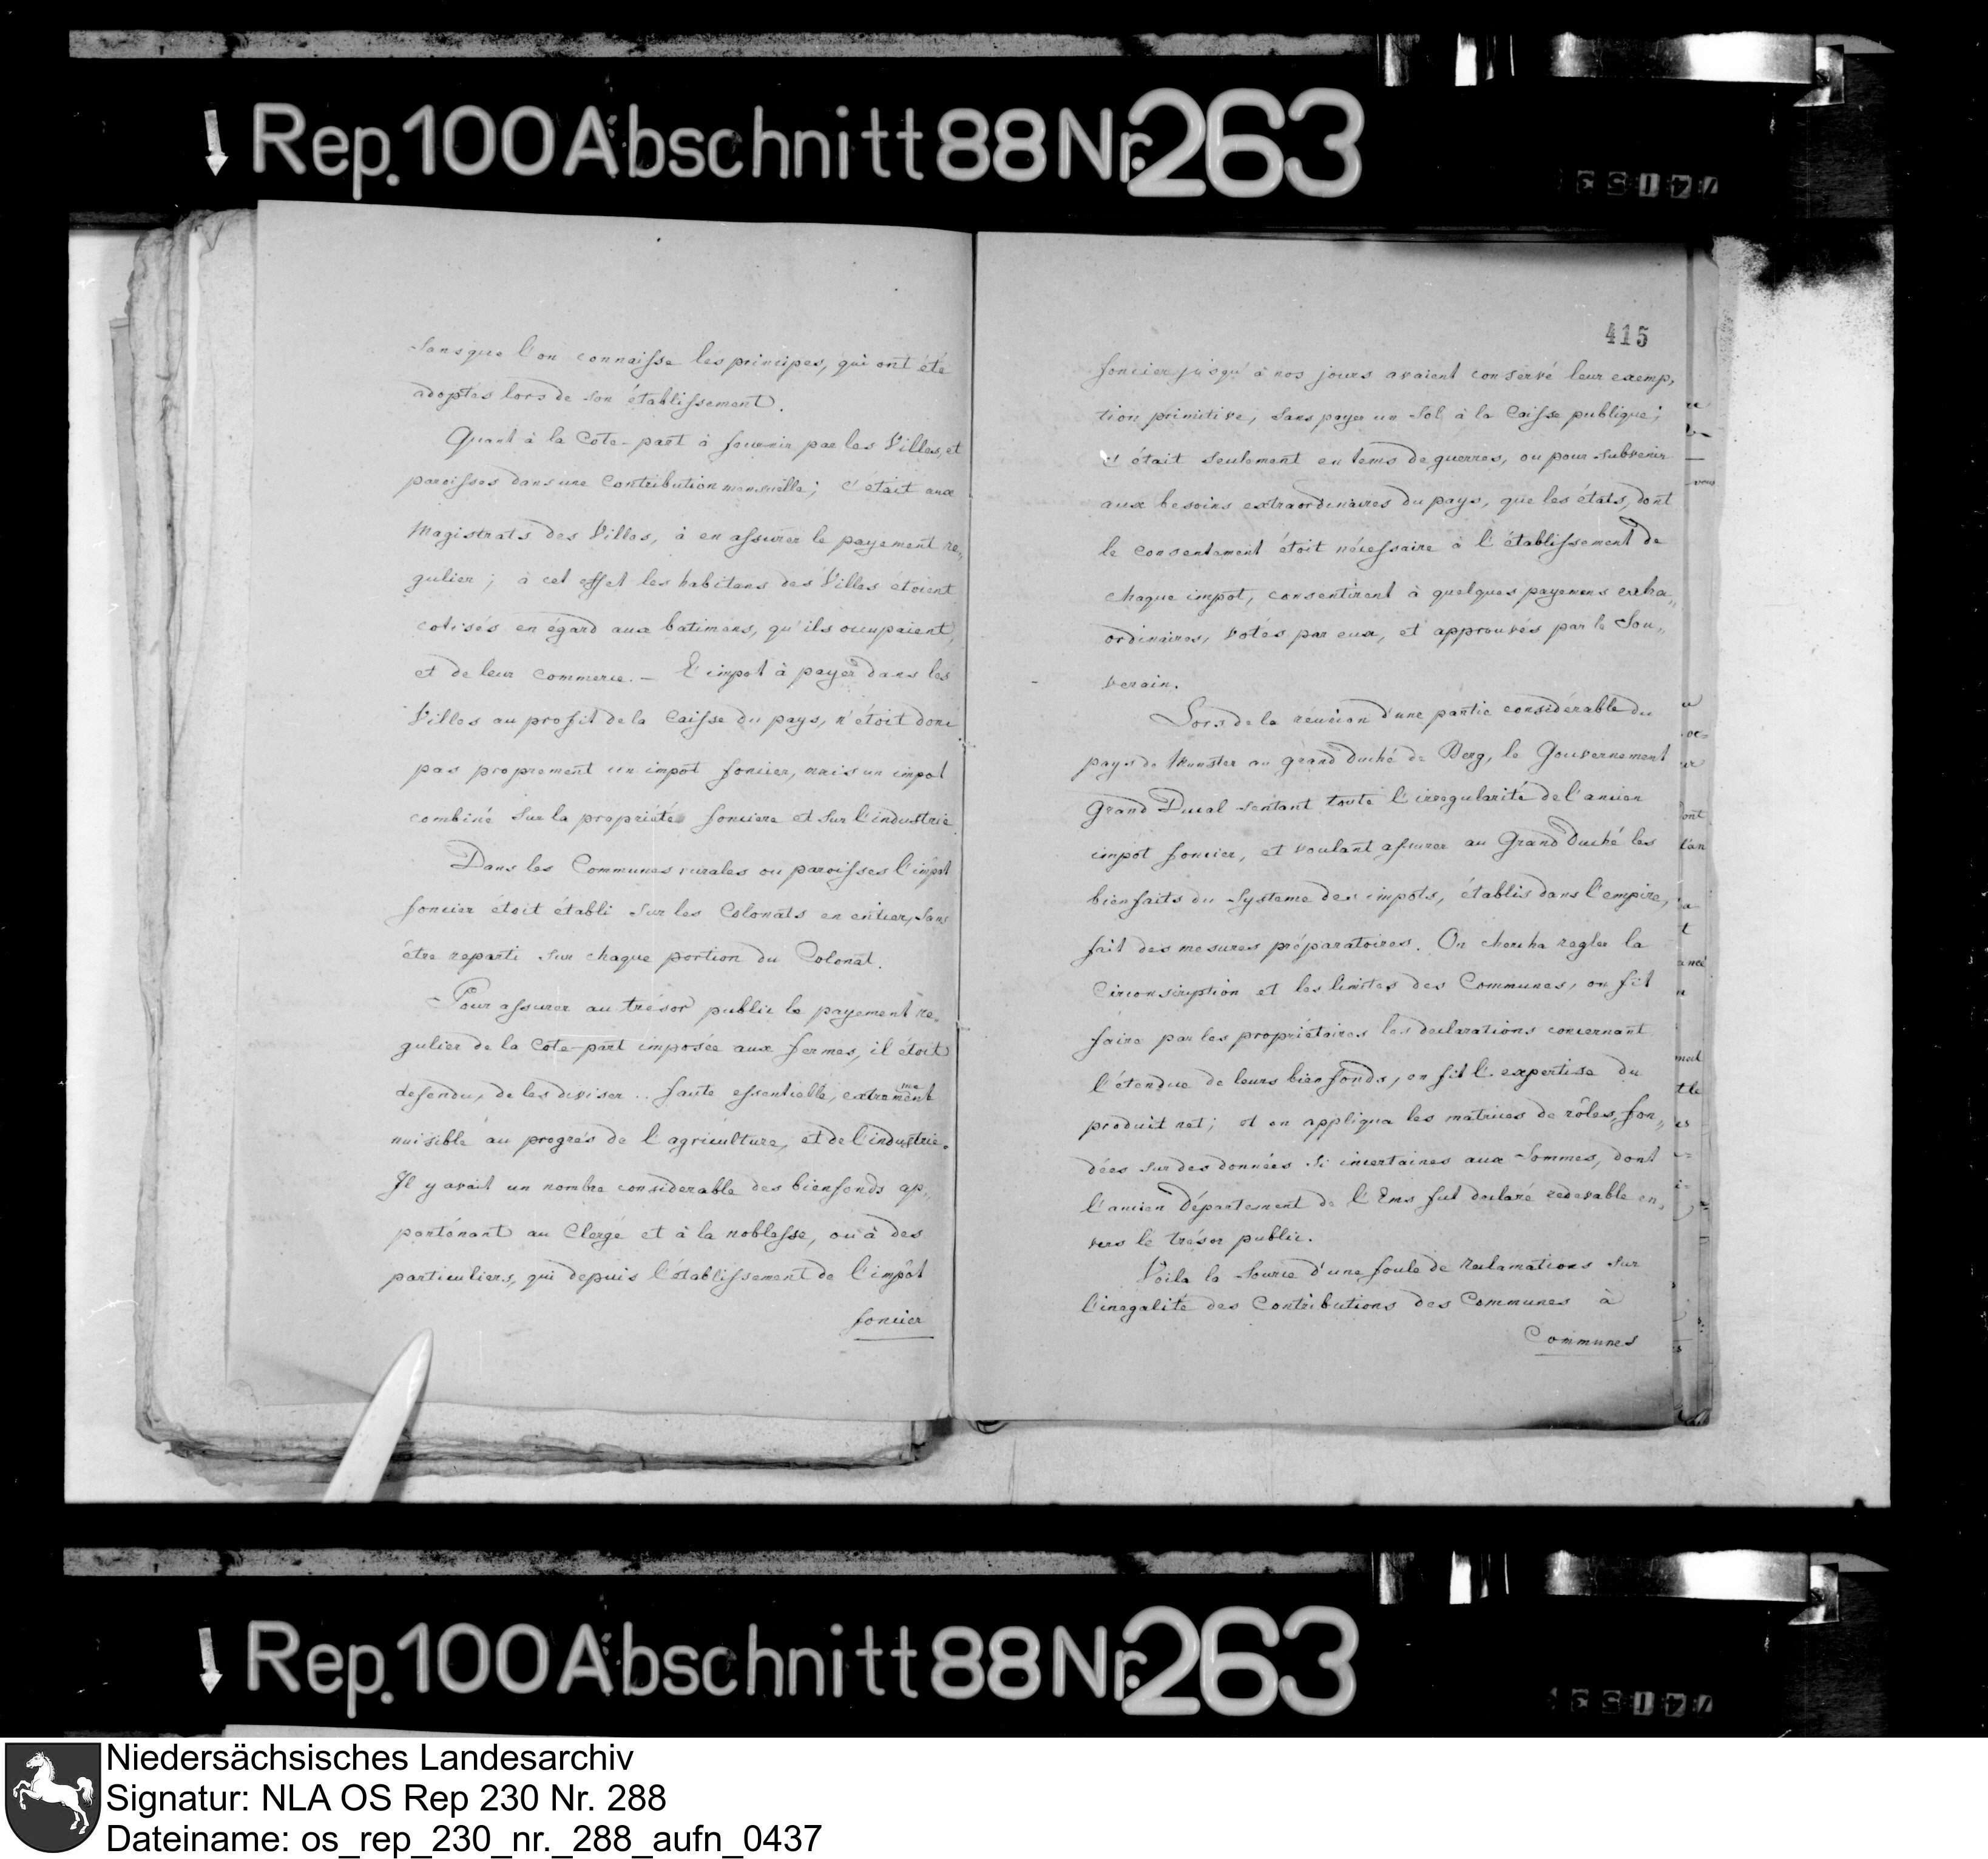 Rep. 100 Abschnitt 88 Nr. 263
sans que l'on connaisse les principes, qui ont été
adoptés lors de son établissement.
Quant à la Cote-part à fournir par les Villes, et
paroisses dans une Contribution mensuelle; c'était aux
Magistrats des Villes, à en assurer le payement re„
gulier; à cet effet les habitans des Villes étoient
cotisés en égard aux batimens, qu'ils occupaient,
et de leur commerce. – L'impot à payer dans les
Villes au profit de la Caisse du pays, n'étoit donc
pas proprement un impot foncier, mais un impot
combiné sur la propriété fonciere et sur l'industrie
Dans les Communes rurales ou paroisses l'impôt
foncier étoit établi sur les Colonats en entier, sans
être reparti sur chaque portion du Colonat.
Pour assurer au trésor public le payement re„
gulier de la Cote-part imposée aux fermes, il étoit
defendu, de les diviser .. faute essentielle, extremement
nuisible au progrès de l'agriculture, et de l'industrie.
Il y avait un nombre considerable des bienfonds ap„
partenant au Clergé et à la noblesse, ou à des
particuliers, qui depuis l'établissement de l'impôt
foncier
415
foncier jusqu'à nos jours avaient conservé leur exemp„
tion primitive, sans payer un Sol à la Caisse publique;
c'était seulement en tems de guerres, ou pour subvenir
aux besoins extraordinaires du pays, que les états, dont
le consentement étoit nécessaire à l'établissement de
chaque impot, consentirent à quelques payemens extra„
ordinaires, votés par eux, et approuvés par le Sou„
verain.
Lors de la réunion d'une partie considérable du
pays de Munster au grand Duché de Berg, le Gouvernement
Grand Ducal sentant toute l'irregularité de l'ancien
impot foncier, et voulant assurer au Grand Duché les
bienfaits du Systeme des impots, établis dans l'empire,
fait des mesures préparatoires. On chercha regler la
Circonscription et les limites des Communes, on fit
faire par les propriétaires les declarations concernant
l'étendue de leurs bienfonds, on fit l'expertise du
produit net; et on appliqua les matrices de rôles, fon„
dées sur des données si incertaines aux sommes, dont
l'ancien Département de l'Ems fut declaré redevable en„
vers le trésor public.
Voila la Source d'une foule de reclamations sur
l'inegalité des Contributions des Communes à
Communes
Rep. 100 Abschnitt 88 Nr. 263
Niedersächsisches Landesarchiv
Signatur: NLA OS Rep 230 Nr. 288
Dateiname: os_rep_230_nr._288_aufn_0437